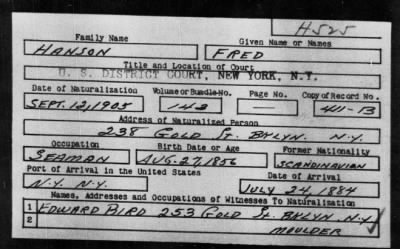 H525
Family Name Given Name or Names
HANSON FRED
Title and Location of Court
U. S. DISTRICT COURT, NEW YORK, N.Y.
Date of Naturalization Volume or Bundle No. Page No. Copy of Record No.
SEPT. 12, 1905 142 — 411-13
Address of Naturalized Person
238 GOLD ST. BKLYN. N.Y.
Occupation Birth Date or Age Former Nationality
SEAMAN AUG. 27, 1856 SCANDINAVIAN
Port of Arrival in the United States Date of Arrival
N.Y. N.Y. JULY 24, 1884
Names, Addresses and Occupations of Witnesses To Naturalization
1 EDWARD BIRD 253 GOLD ST. BKLYN. N.Y.
2 MOULDER